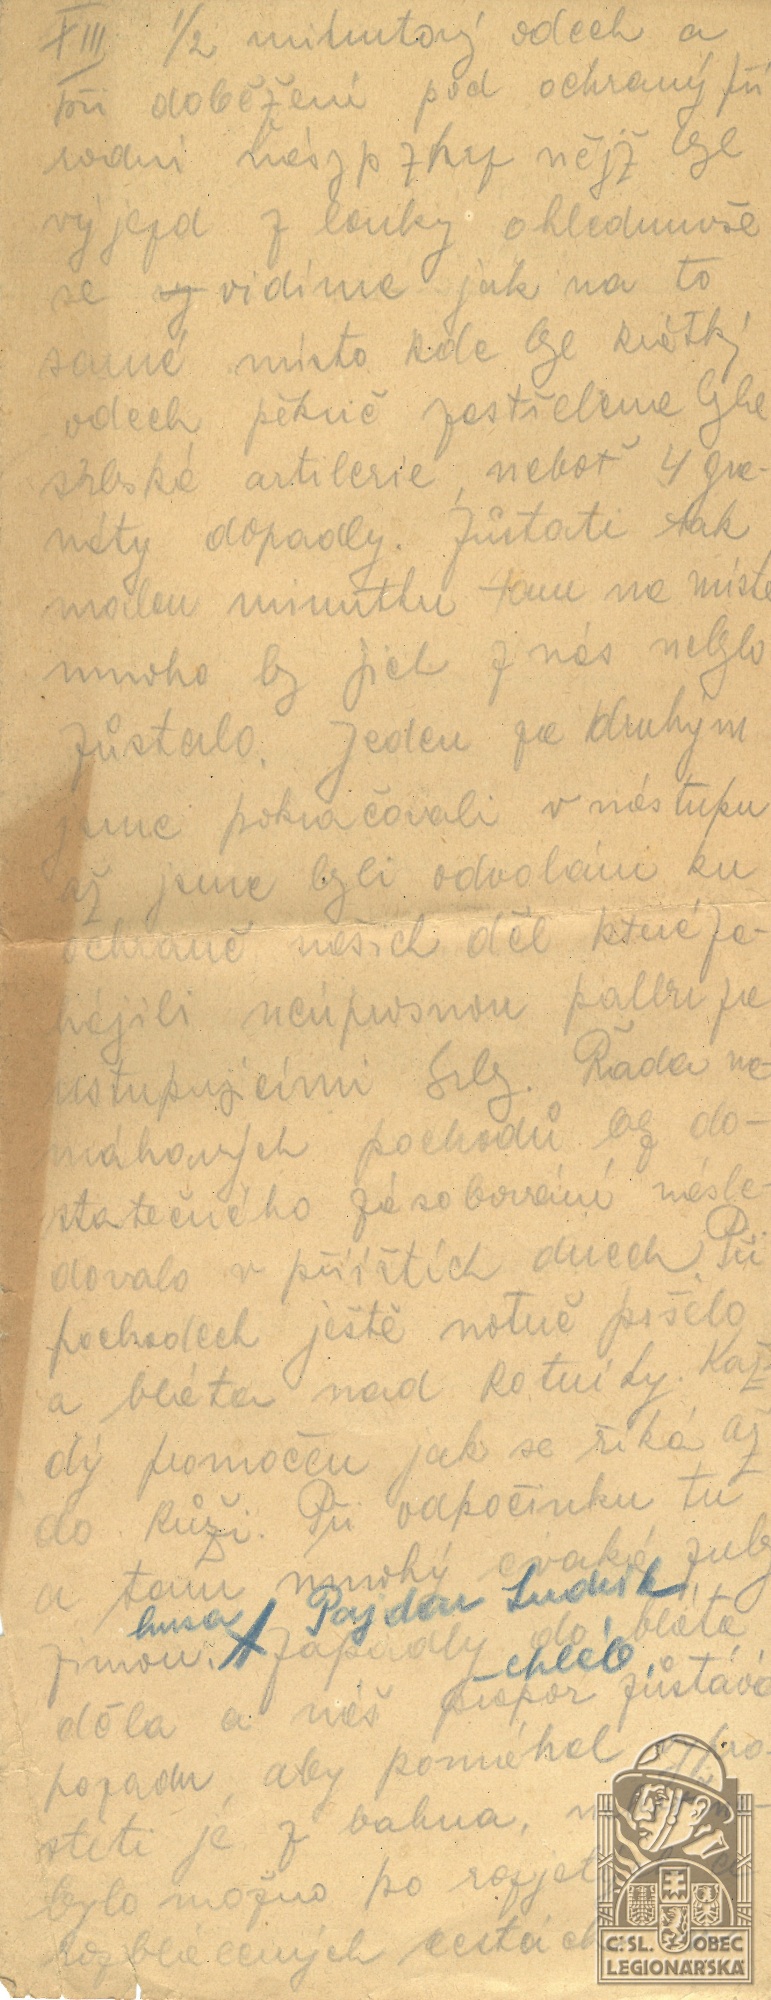 XIII 1/2 minutový odech a
při doběžení pod ochraný pří
rodní nějž byl
výjezd z louky ohlednuvše
se vidíme jak na to
samé místo kde byl krátký
odech pěkně zastřelene byla
srbské artilerie, neboť 4 gra-
náty dopadly. Zůstati tak
malou minutku tam na místě
mnoho by jich z nás nebylo
zůstalo. Jeden za druhým
jsme pokračovali v nástupu
až jsme byli odvoláni ku
ochraně našich děl které za-
hájili neúprosnou palbu za
ustupujícími Srby. Řada na
máhavých pochodů bez do-
statečného zásobování násle-
dovalo v příštích dnech. Při
pochodech ještě notně pršelo
a bláta nad kotníky. Kaž-
dý promočen jak se říká až
do kůži. Při odpočinku tu
a tam mnohý cvaká zuby
husa Pajdar Ludvík
zimou. Zapadly do bláta
chléb
děla a náš prapor zůstává
pozadu, aby pomáhal vypro-
stiti je z bahna,
bylo možno po
rozblácených cestách
Č. SL. OBEC
LEGIONÁŘSKÁ